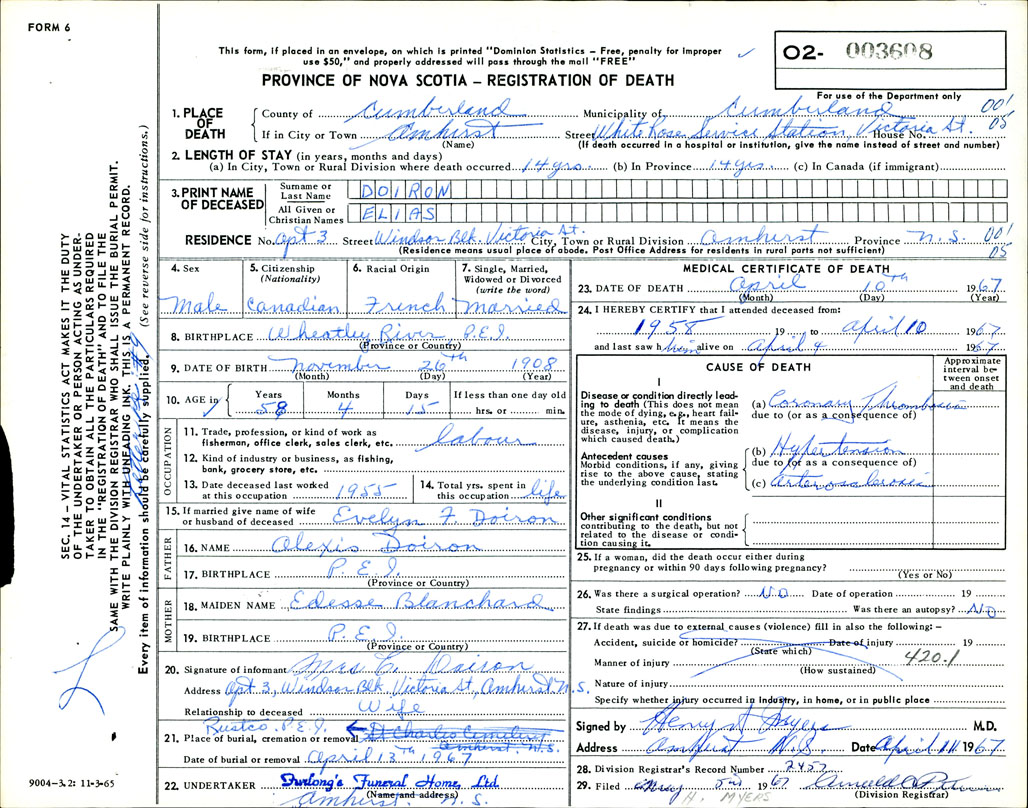 FORM 6
This form, if placed in an envelope, on which is printed "Dominion Statistics – Free, penalty for improper
use $50," and properly addressed will pass through the mail "FREE"
O2- 003608
PROVINCE OF NOVA SCOTIA – REGISTRATION OF DEATH
For use of the Department only
1. PLACE OF DEATH
County of Cumberland Municipality of Cumberland 001
If in City or Town Amherst Street White Rose Service Station, Victoria St. House No. 05
(Name) (If death occurred in a hospital or institution, give the name instead of street and number)
2. LENGTH OF STAY (in years, months and days)
(a) In City, Town or Rural Division where death occurred 14 yrs. (b) In Province 14 yrs. (c) In Canada (if immigrant)
3. PRINT NAME OF DECEASED
Surname or Last Name DOIRON
All Given or Christian Names ELIAS
RESIDENCE No. Apt 3 Street Windsor Blk. Victoria St. City, Town or Rural Division Amherst Province N.S. 001
(Residence means usual place of abode. Post Office Address for residents in rural parts not sufficient) 05
4. Sex
Male
5. Citizenship (Nationality)
Canadian
6. Racial Origin
French
7. Single, Married, Widowed or Divorced (write the word)
Married
8. BIRTHPLACE Wheatley River P.E.I.
(Province or Country)
9. DATE OF BIRTH November 26th 1908
(Month) (Day) (Year)
10. AGE in Years Months Days If less than one day old
58 4 15 hrs. or min.
OCCUPATION
11. Trade, profession, or kind of work as
fisherman, office clerk, sales clerk, etc. labour
12. Kind of industry or business, as fishing,
bank, grocery store, etc.
13. Date deceased last worked
at this occupation 1955
14. Total yrs. spent in
this occupation life
15. If married give name of wife
or husband of deceased Evelyn F. Doiron
FATHER
16. NAME Alexis Doiron
17. BIRTHPLACE P.E.I.
(Province or Country)
MOTHER
18. MAIDEN NAME Edesse Blanchard
19. BIRTHPLACE P.E.I.
(Province or Country)
20. Signature of informant Mrs E. Doiron
Address Apt 3, Windsor Blk. Victoria St, Amherst N.S.
Relationship to deceased Wife
Rustco, P.E.I.
21. Place of burial, cremation or removal St Charles Cemetery
Amherst N.S.
Date of burial or removal April 13th 1967
22. UNDERTAKER Furlong's Funeral Home, Ltd.
(Name and address)
Amherst N.S.
MEDICAL CERTIFICATE OF DEATH
23. DATE OF DEATH April 10th 1967
(Month) (Day) (Year)
24. I HEREBY CERTIFY that I attended deceased from:
1958 19 to April 10 1967
and last saw him alive on April 4 1967
CAUSE OF DEATH
Approximate interval between onset and death
I
Disease or condition directly leading to death (This does not mean the mode of dying, e.g., heart failure, asthenia, etc. It means the disease, injury, or complication which caused death.)
(a) Coronary Thrombosis
due to (or as a consequence of)
Antecedent causes
Morbid conditions, if any, giving rise to the above cause, stating the underlying condition last.
(b) Hypertension
due to (or as a consequence of)
(c) Arterosclerosis
II
Other significant conditions
contributing to the death, but not related to the disease or condition causing it.
25. If a woman, did the death occur either during
pregnancy or within 90 days following pregnancy?
(Yes or No)
26. Was there a surgical operation? NO Date of operation 19
State findings Was there an autopsy? NO
27. If death was due to external causes (violence) fill in also the following: –
Accident, suicide or homicide? Date of injury 19
(State which)
Manner of injury 420.1
(How sustained)
Nature of injury
Specify whether injury occurred in Industry, in home, or in public place
Signed by Henry S. Myers M.D.
Address Amherst N.S. Date April 11 1967
28. Division Registrar's Record Number 2457
29. Filed May 5th 1967
(Division Registrar)
H. MYERS
SEC. 14 – VITAL STATISTICS ACT MAKES IT THE DUTY
OF THE UNDERTAKER OR PERSON ACTING AS UNDER-
TAKER TO OBTAIN ALL THE PARTICULARS REQUIRED
IN THE "REGISTRATION OF DEATH" AND TO FILE THE
SAME WITH THE DIVISION REGISTRAR WHO SHALL ISSUE THE BURIAL PERMIT.
WRITE PLAINLY WITH UNFADING INK. THIS IS A PERMANENT RECORD.
Every item of information should be carefully supplied. (See reverse side for instructions.)
9004–3.2: 11-3-65